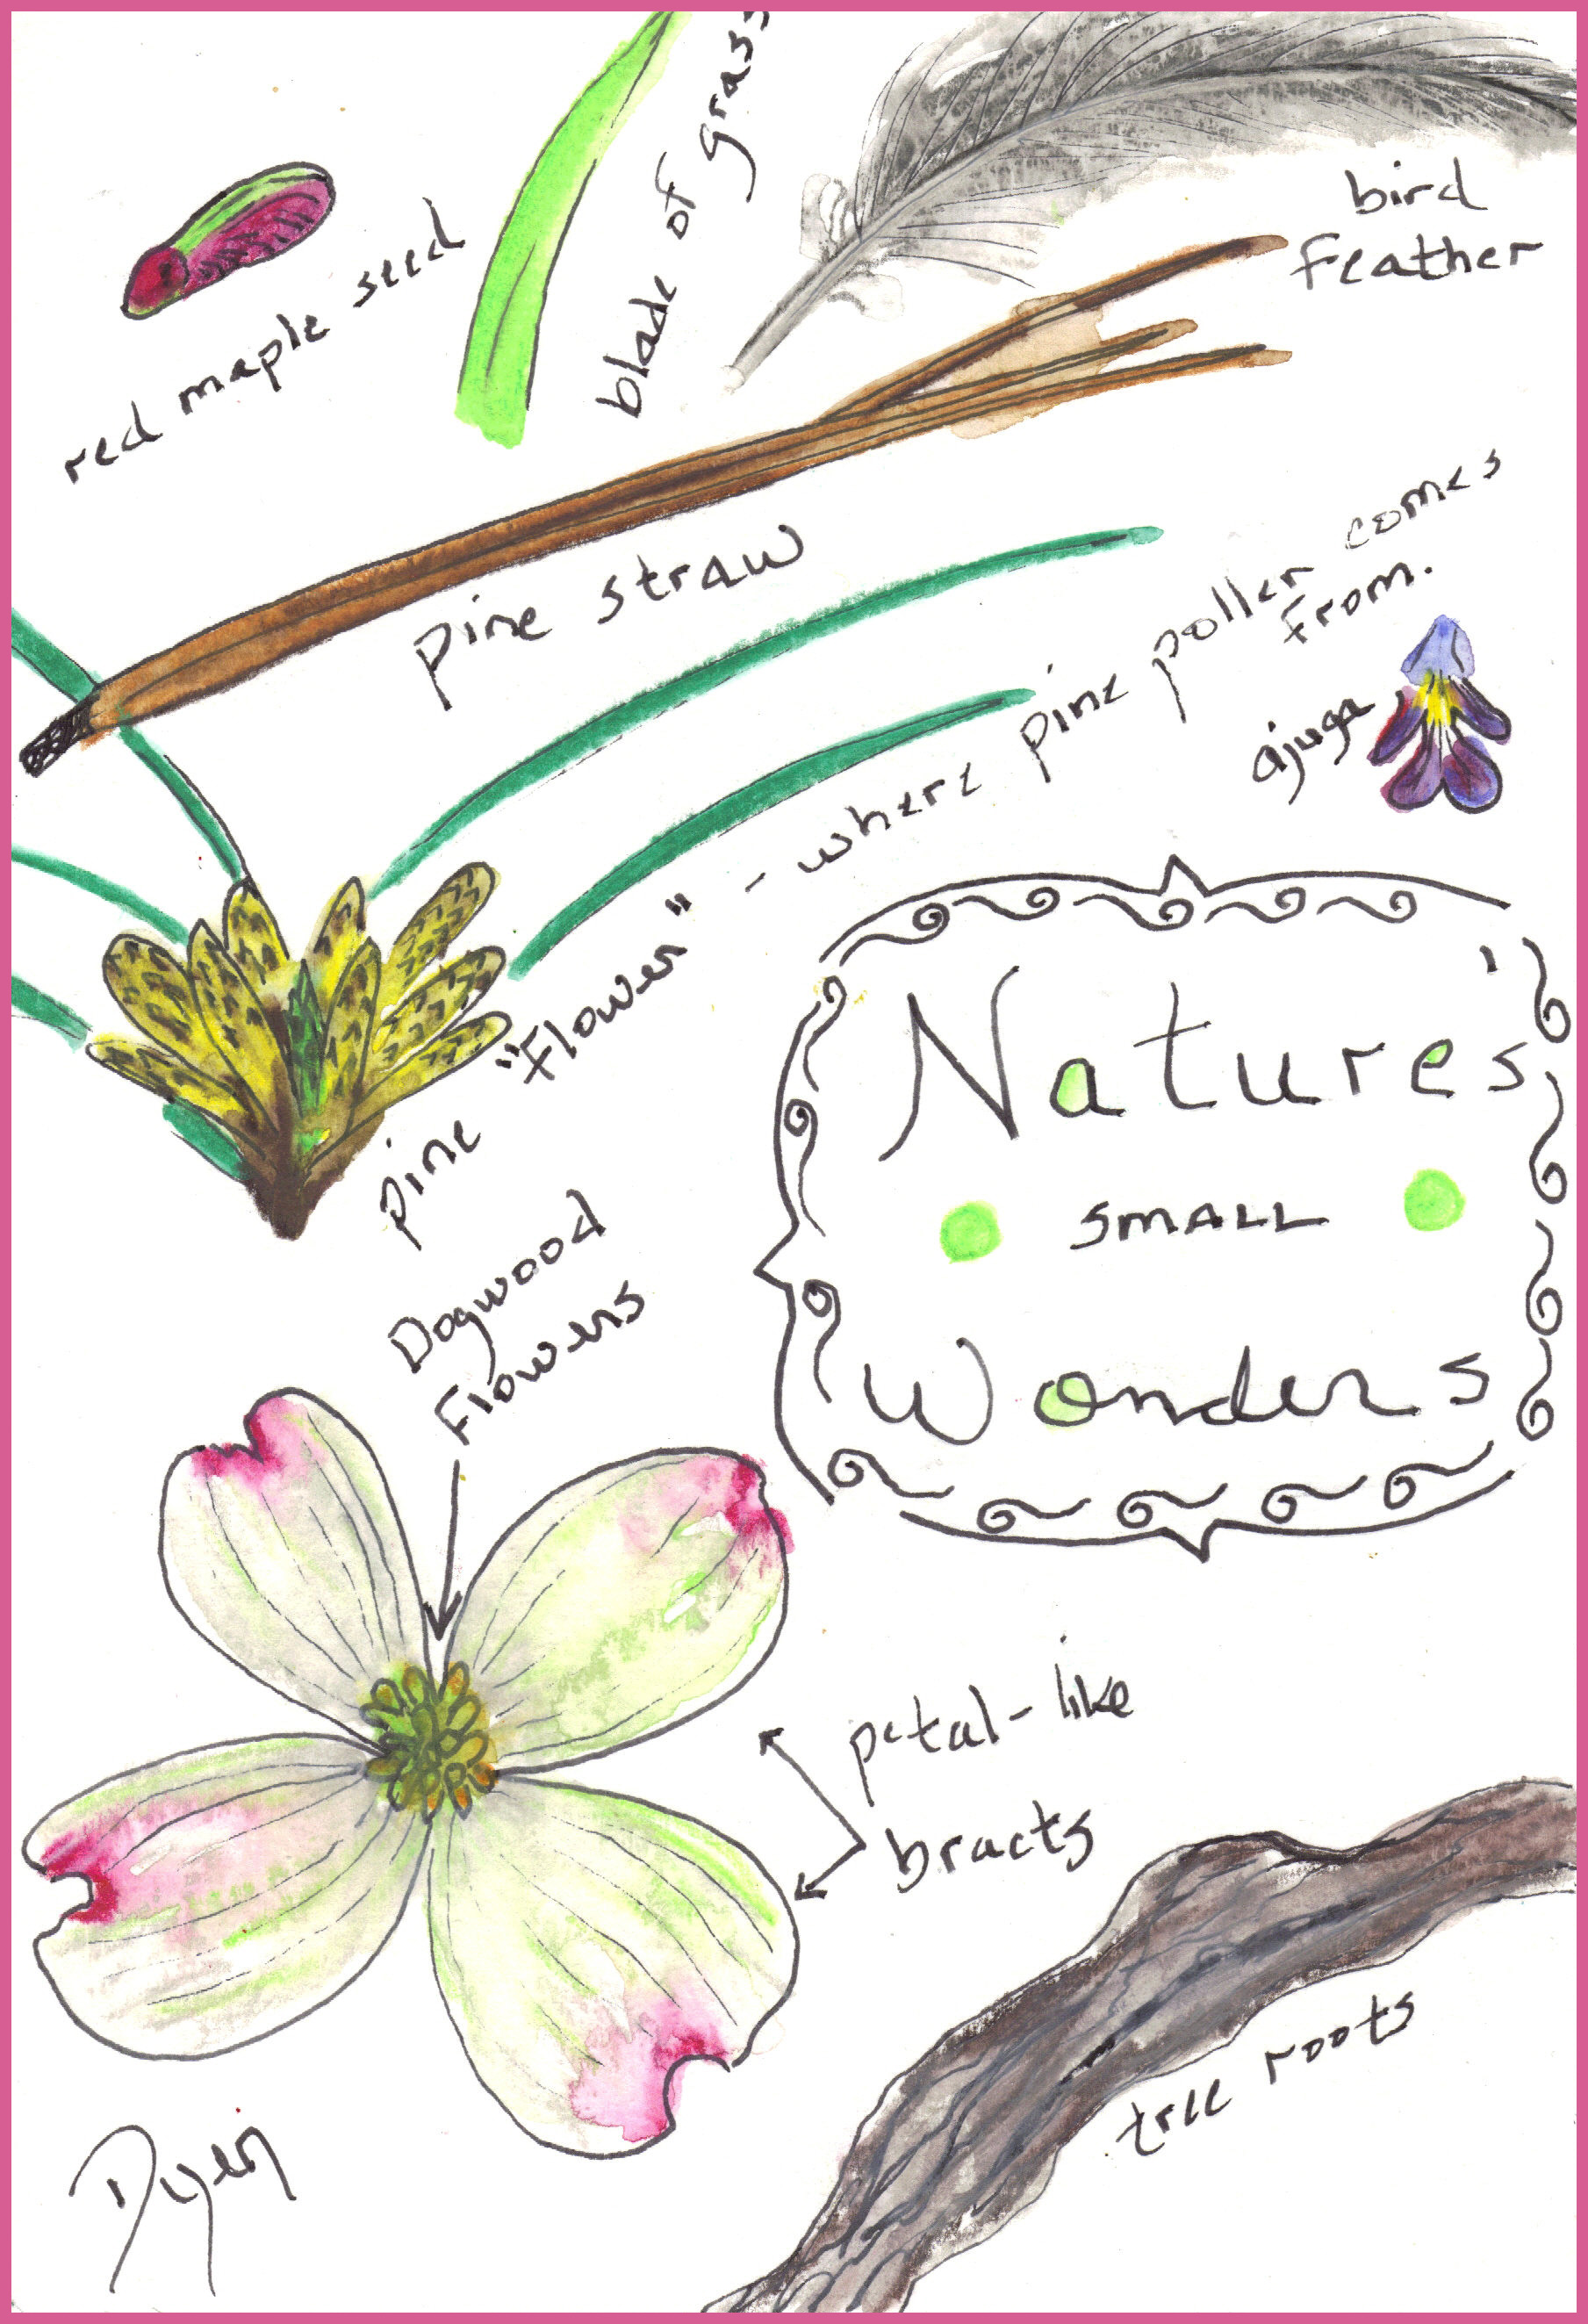 blade of grass
bird
feather
red maple seed
pine straw
pine "flower" - where pine pollen comes
from.
ajuga
Nature's
SMALL
Wonders
Dogwood
Flowers
petal-like
bracts
tree roots
Dyer